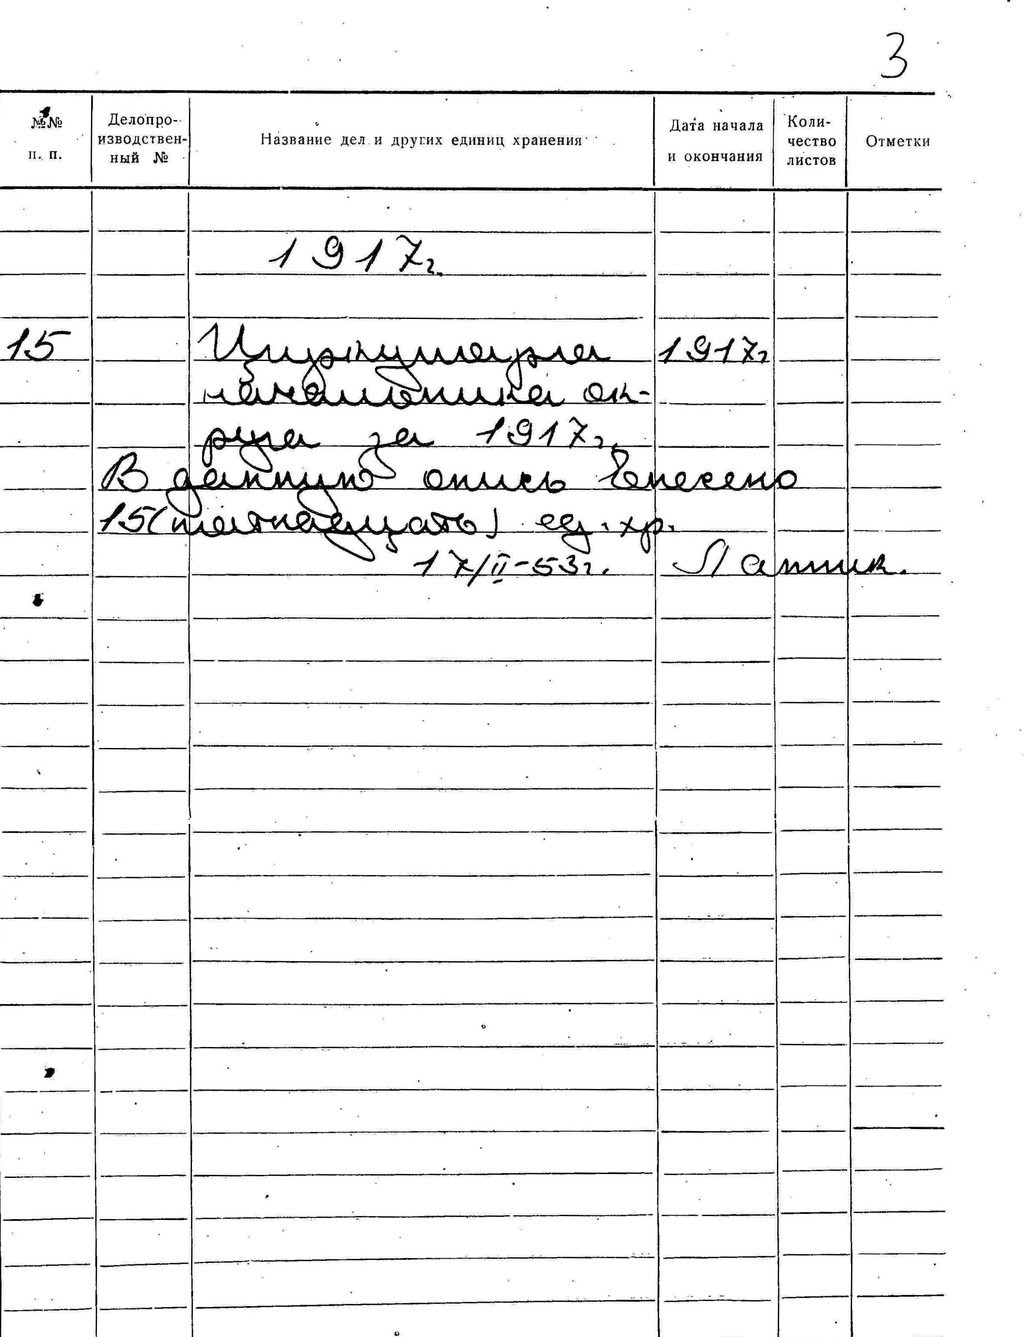 3
№№ п. п.
Делопро-
изводствен-
ный №
Название дел и других единиц хранения
Дата начала
и окончания
Коли-
чество
листов
Отметки
1917г.
15 Циркуляра 1917г
начальника ок-
руга за 1917г.
В данную опись внесено
15 (пятнадцать) ед. хр.
17/II-53г.